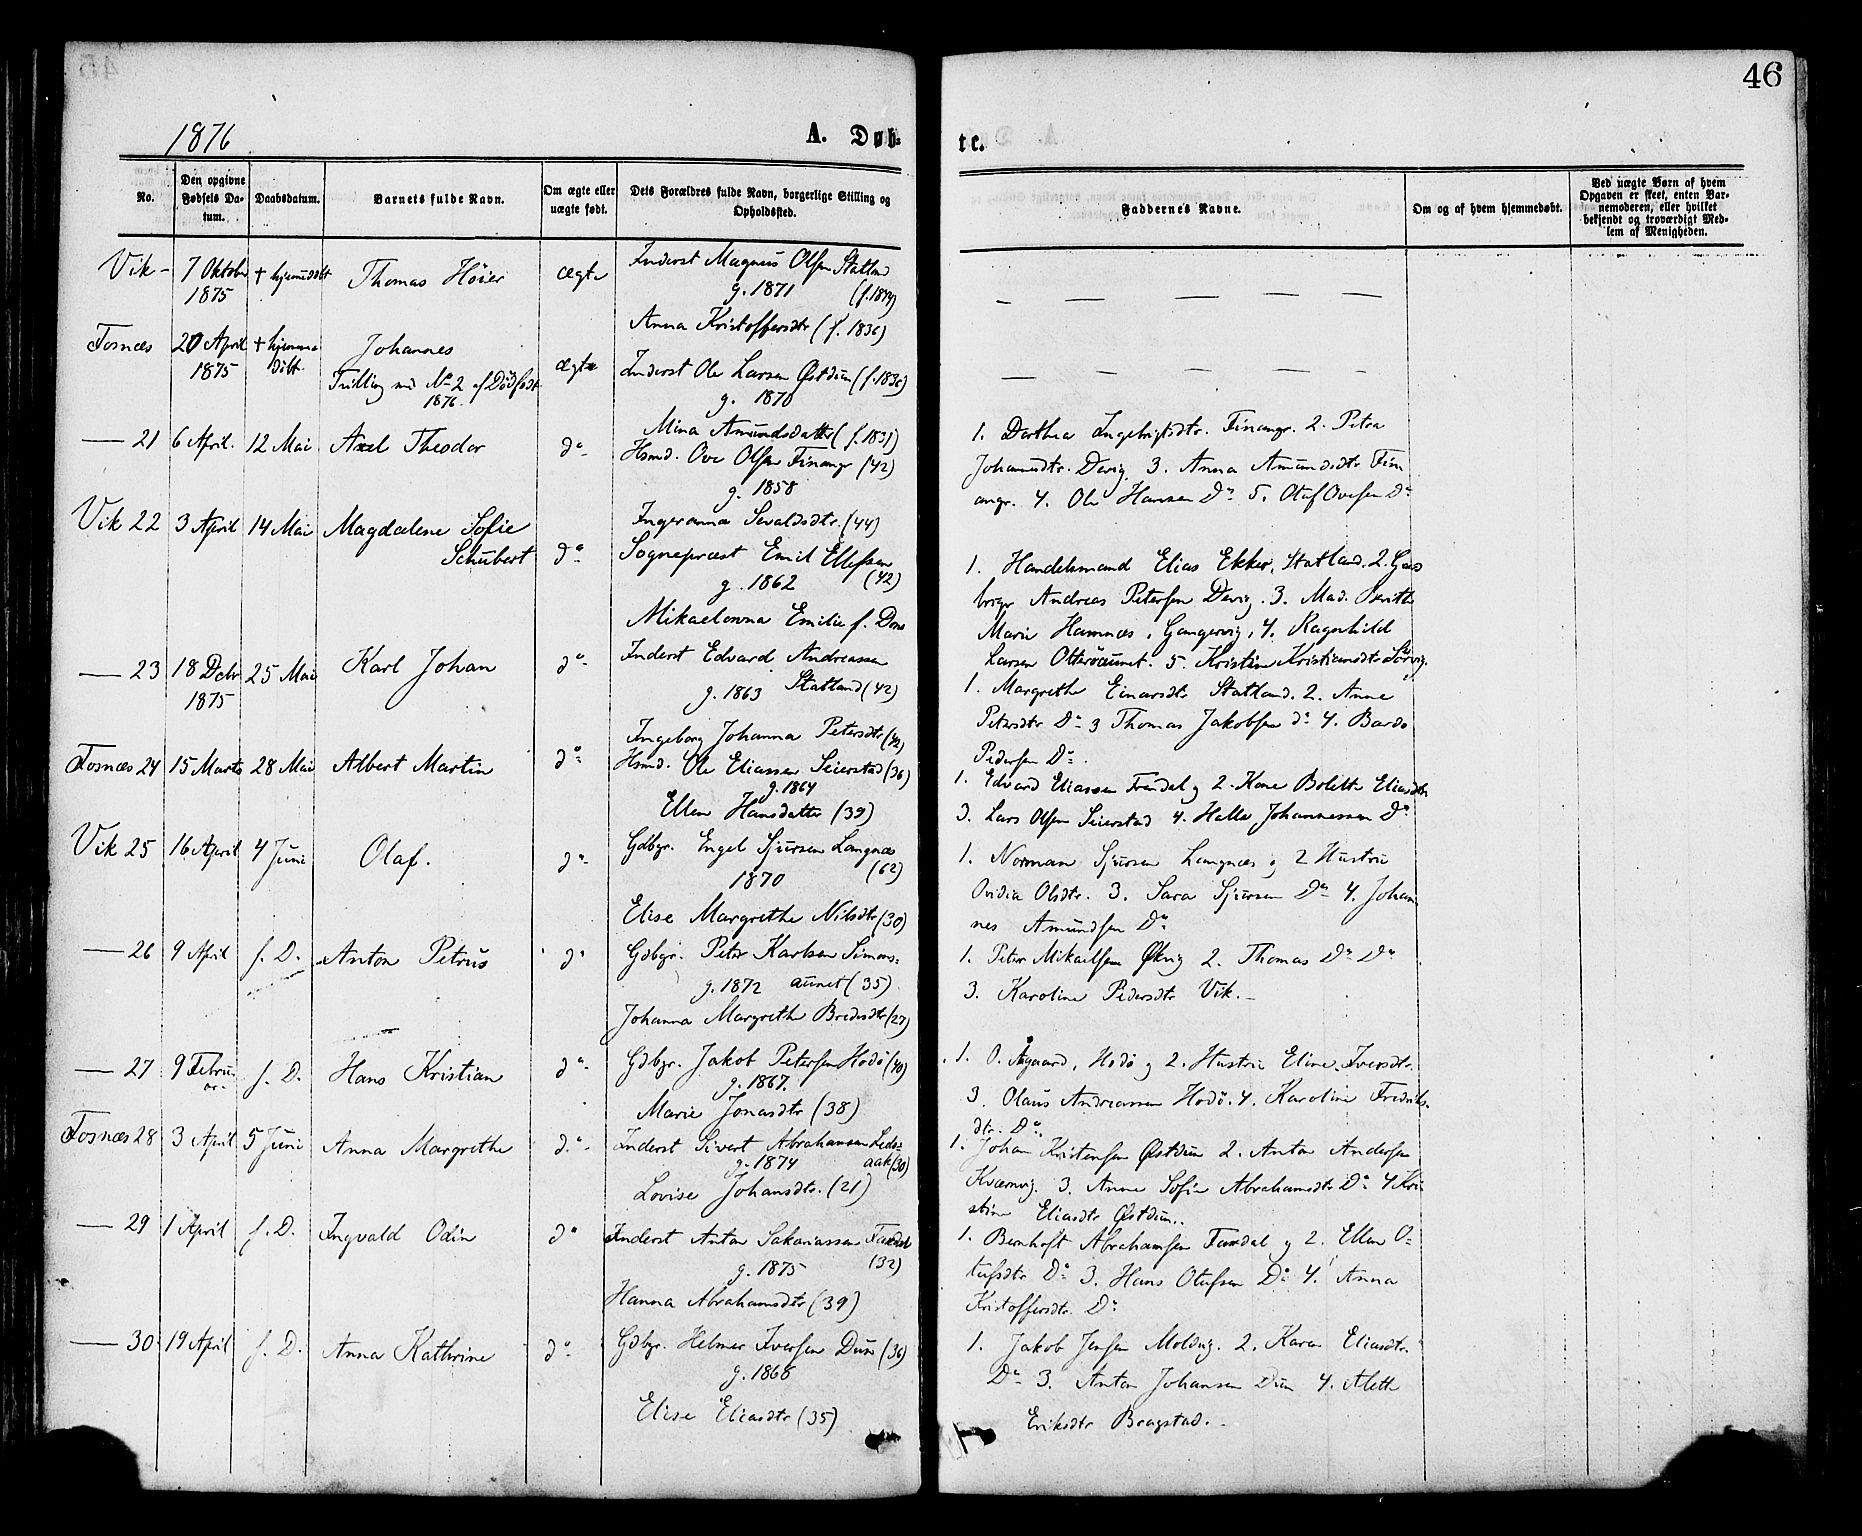 46
1876
A. Døb-
te.
No.
Den opgivne Fødsels Da-tum.
Daabsdatum.
Barnets fulde Navn.
Om ægte eller uægte født.
Dets Forældres fulde Navn, borgerlige Stilling og Opholdssted.
Faddernes Navne.
Om og af hvem hjemmedøbt.
Ved uægte Børn af hvem Opgaven er skeet, enten Bar-nemoderen, eller hvilket bekjendt og troværdigt Med-lem af Menigheden.
Vik - 7 Oktober 1875 + hjemmedøbt Thomas Høier ægte Inderst Magnus Olsen Statland
g. 1871
Anna Kristoffersdtr (f. 1836)
— — — — —
Fosnæs 20 April 1875 + hjemme døbt. Johannes
Trilling med No 2 af Dødfødt 1876. ægte Inderst Ole Larsen Østduun (f. 1836)
g. 1870
Mina Amundsdatter (f. 1831)
— — — — —
— 21 6 April. 12 Mai Axel Theodor do Hsmd. Ove Olsen Finangr (42)
g. 1858
Ingeranna Sevaldsdtr. (44)
1. Dorthea Ingebrigtsdtr. Finangr. 2. Petra
Johannesdtr. Devig 3. Anna Amundsdtr Fin
angr. 4. Ole Hansen Do 5. Olaf Ovesen Do
Vik 22 3 April 14 Mai Magdalene Sofie
Schubert do Sognepræst Emil Ellefsen
g. 1862 (42)
Mikaelowna Emilie f. Dons
1. Handelsmand Elias Ekker, Statland. 2. Gaard
brugr Andreas Petersen Devig. 3. Mad.
Marie Hamnæs, Gangervig, 4. Ragnhild
Larsen Otterøaunet. 5. Kristine Kristiansdtr Sørvig.
— 23 18 Debr 1875 25 Mai Karl Johan do Inderst Edvard Andreassen
g. 1863 Statland (42)
Ingeborg Johanna Petersdtr (42)
1. Margrethe Einarsdtr Statland. 2. Anne
Petersdtr Do 3 Thomas Jakobsen do 4. Bardo
Pedersen Do
Fosnæs 24 15 Marts 28 Mai Albert Martin do Hsmd. Ole Eliassen Seierstad (36)
g. 1864
Ellen Hansdatter (39)
1. Edvard Eliassen Fandal og 2. Kone Bolette Eliasdtr
3. Lars Olsen Seierstad 4. Halle Johannessen Do
Vik 25 16 April 4 Juni Olaf. do Gdbgr. Engel Sjursen Langnæs
1870 (62)
Elise Margrethe Nilsdtr (30)
1. Norman Sjursen Langnæs og 2 Hustru
Ovidia Olsdtr. 3. Sara Sjursen Do 4. Johan
nes Amundsen Do
— 26 9 April f. D. Anton Petrus do Gdbgr. Peter Karlsen Simons-
g. 1872 aunet (35)
Johanna Margrethe Bredesdtr (27)
1. Peter Mikaelsen Økvig 2. Thomas Do Do
3. Karoline Pedersdtr Vik. -
— 27 9 Febru ar- f. D. Hans Kristian do Gdbgr. Jakob Petersen Hodø (40)
g. 1867.
Marie Jonasdtr (38)
1. O. Aagaard, Hodø og 2. Hustru Eline Iversdtr.
3. Olaus Andreassen Hodø. 4. Karoline Fredriks-
dtr. Do
Fosnæs 28 3 April 5 Juni Anna Margrethe do Inderst Sivert Abrahamsen Leds-
g. 1874 aak (30)
Lovise Johansdtr. (21)
1. Johan Kristensen Østduun 2. Anton Andersen
Kværnvig. 3. Anne Sofie Abrahamsdtr Do 4 Kri
stine Eliasdtr Østduun.
— 29 1 April f. D. Ingvald Odin do Inderst Anton Sakariassen Fandal
g. 1875 (32)
Hanna Abrahamsdtr (39)
1. Bernhoft Abrahamsen Fandal og 2. Ellen O-
lufsdtr Do 3. Hans Olufsen Do 4. Anna
Kristoffersdtr. Do
— 30 19 April f. D. Anna Kathrine do Gdbgr. Helmer Iversen Duun (36)
g. 1868
Elise Eliasdtr (35)
1. Jakob Jensen Moldvig. 2. Karen Eliasdtr.
Do 3. Anton Johansen Duun 4. Alette
Eriksdtr Bragstad. -